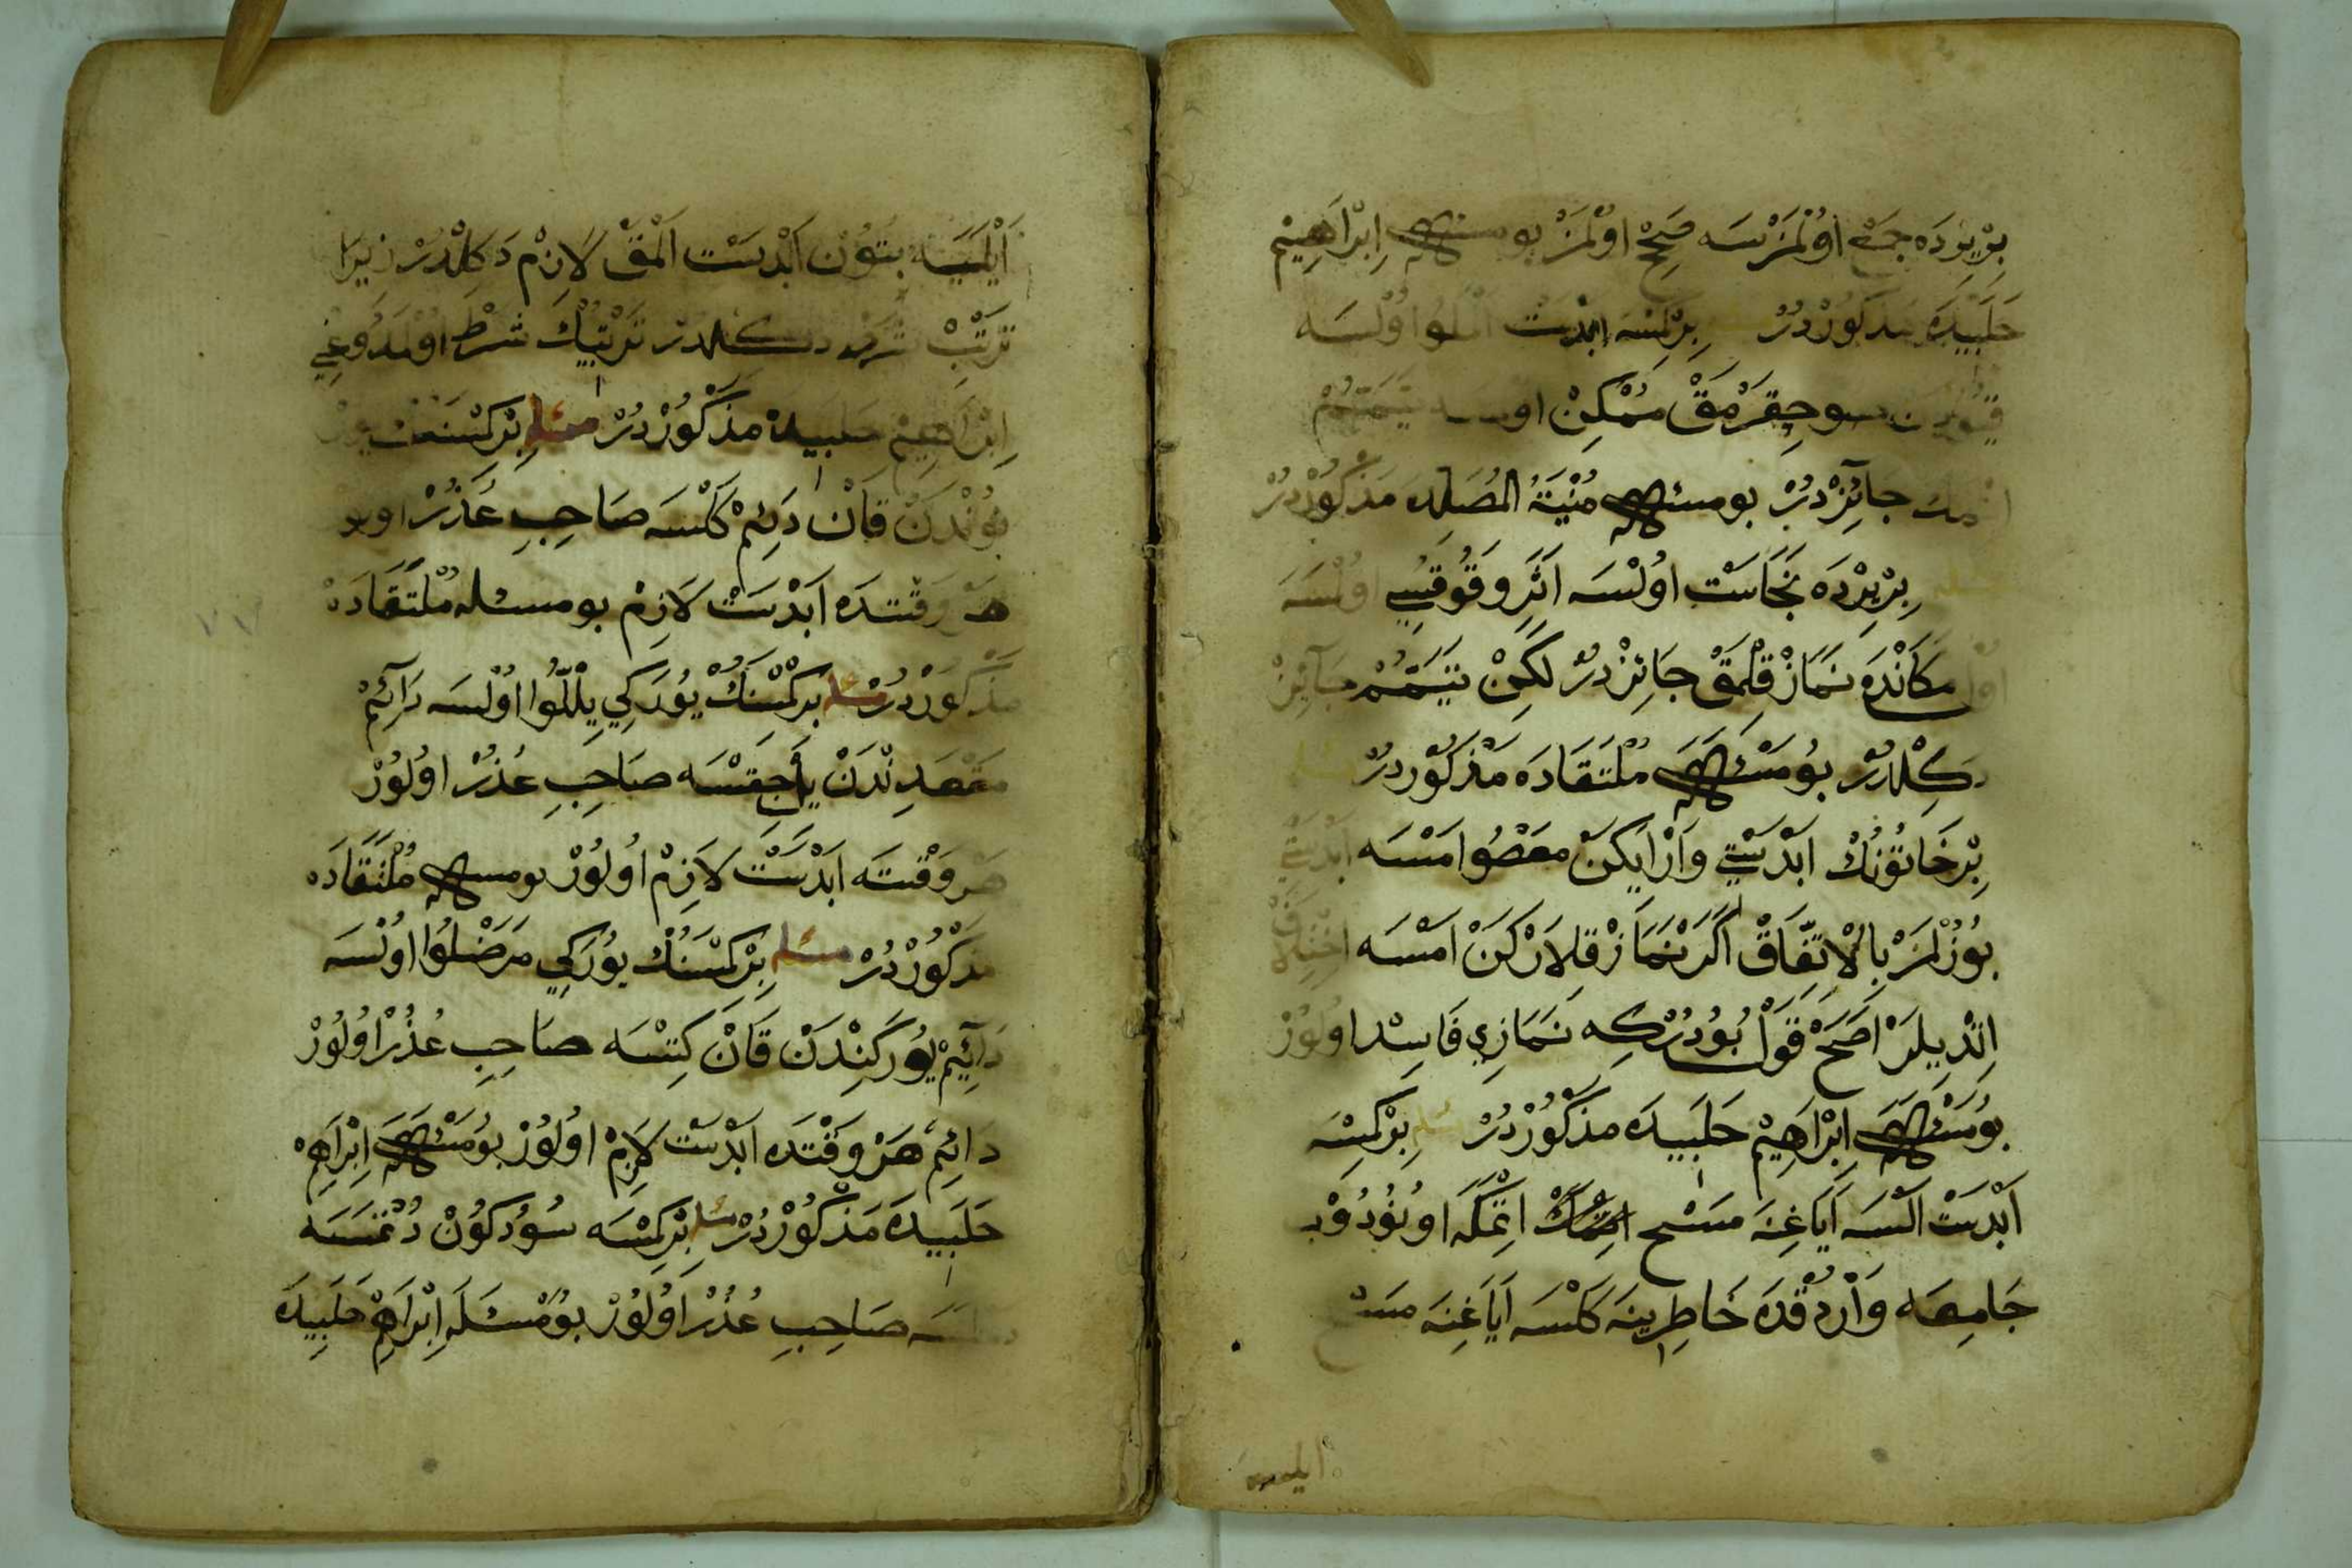 بِرْيِرْدَه جَمْع اوُلْمَزْسَه صَحِحْ اوُلْمَزْ بو مسئله اِبْرَاهِيْم
حَلَبِيْدَه مَذْكُورْدُرْ بِرْكِمْسَه ابْدَسْت المَلُوا اوُلْسَه
قيُودَن سو چِقَرْمَقْ مُمْكِنْ اولسه تَيَمُّمْ
اتمك جائِزْدُرْ بو مسئله مُنْيَةُ المُصَلِّيدَه مَذْكُورْدُرْ
بِرْيِرْدَه نَجَاسَتْ اوُلْسَه اَثَرِ وَقُوقُسِي اوُلْسَه
اوُل مَكَانْدَه نَمَازْ قِلْمَقْ جَائِزْدُرْ لَكِنْ تَيَمُّمْ جَائِزْ
دَكِلْدُرْ بُو مَسْئَلَه مُلْتَقَادَه مَذْكُوْردُرْ مسئله
بِرْ خَاتُوُنُكْ ابْدَسْتِي وَارْ ايكَنْ مَعْصُوا مْسَه ابْدَسْتِي
بُوُزُلْمَزْ بِالْاِتِّفَاقْ اَكَرْ نَمَازْ قِلارْكَنْ امْسَه اخْتِلَافْ
اِتْدِيلَرْ اَصَحّْ قَوْلْ بُودُرْكِه نَمَازِي فَاسِدْ اوُلوُرْ
بُو مَسْئَلَه اِبْرَاهِيْم حَلَبِيدَه مَذْكُوْرْدُرْ مسئله بِرْكِمْسَه
اَبْدَسْت اَلْسَه اَيَاغِنَه مَسْح اتْمَكْ اتمكه اوُنُوُدُوْب
جَامِعَه وَارْدُقْدَه خَاطِرِينَه كَلْسَه اَيَاغِنَه مَسْح
ايلميه
اَيْلَمَيَه بتُوُنْ اَبْدَسْت اَلْمَقْ لَازِمْ دَكِلْدُرْ زيرَا
تَرْتِبْ شرط دكلدر تَرْتِيْبُك شَرْطْ اوُلْمَدُوغِي
اِبْرَاهِيْم حلبيده مَذْكُوُرْدُرْ مسئله بِرْكِمْسَنَنك
بُوُرْنُندَنْ قَانْ دَائِمْ كَلْسَه صَاحِبِ عُذُرْ اولور
هَرْ وَقْتدَه اَبْدَسْتْ لَازِمْ بو مسئله مُلْتَقَادَه
مَذْكُوْرْدُرْ مسئله بِرْكِمْسَنُكْ يوُرَكِي يِلْلُّوا اوُلْسَه دَائِمْ
مَقْعَدِنْدَنْ يَلْ چِقْسَه صَاحِبِ عُذُرْ اوُلوُرْ
هَرْ وَقْتتَه اَبْدَسَتْ لَازِمْ اوُلوُرْ بو مسئله مُلْتَقَادَه
مَذْكُوُرْدُرْ مسئله بِرْكِمْسَنُكْ يوُرَكِي مَرَضْلُوا اوُلْسَه
دَائِيمْ يوُرَكِنْدَنْ قَانْ كِتْسَه صَاحِبِ عُذُرْ اوُلوُرْ
دَائِمْ هَرْ وَقْتدَه ابْدَسْت لَازِمْ اوُلوُرْ بوُ مَسْئَلَه اِبْرَاهِيْم
حَلَبِيدَه مَذْكُوُرْدُرْ مسئله بِرْكِمْسَه سُوُدكوُنْ دُتْمَسَه
صَاحِبِ عُذُرْ اوُلوُرْ بوُ مَسْئَلَه اِبْرَاهِيْم حَلَبِيدَه